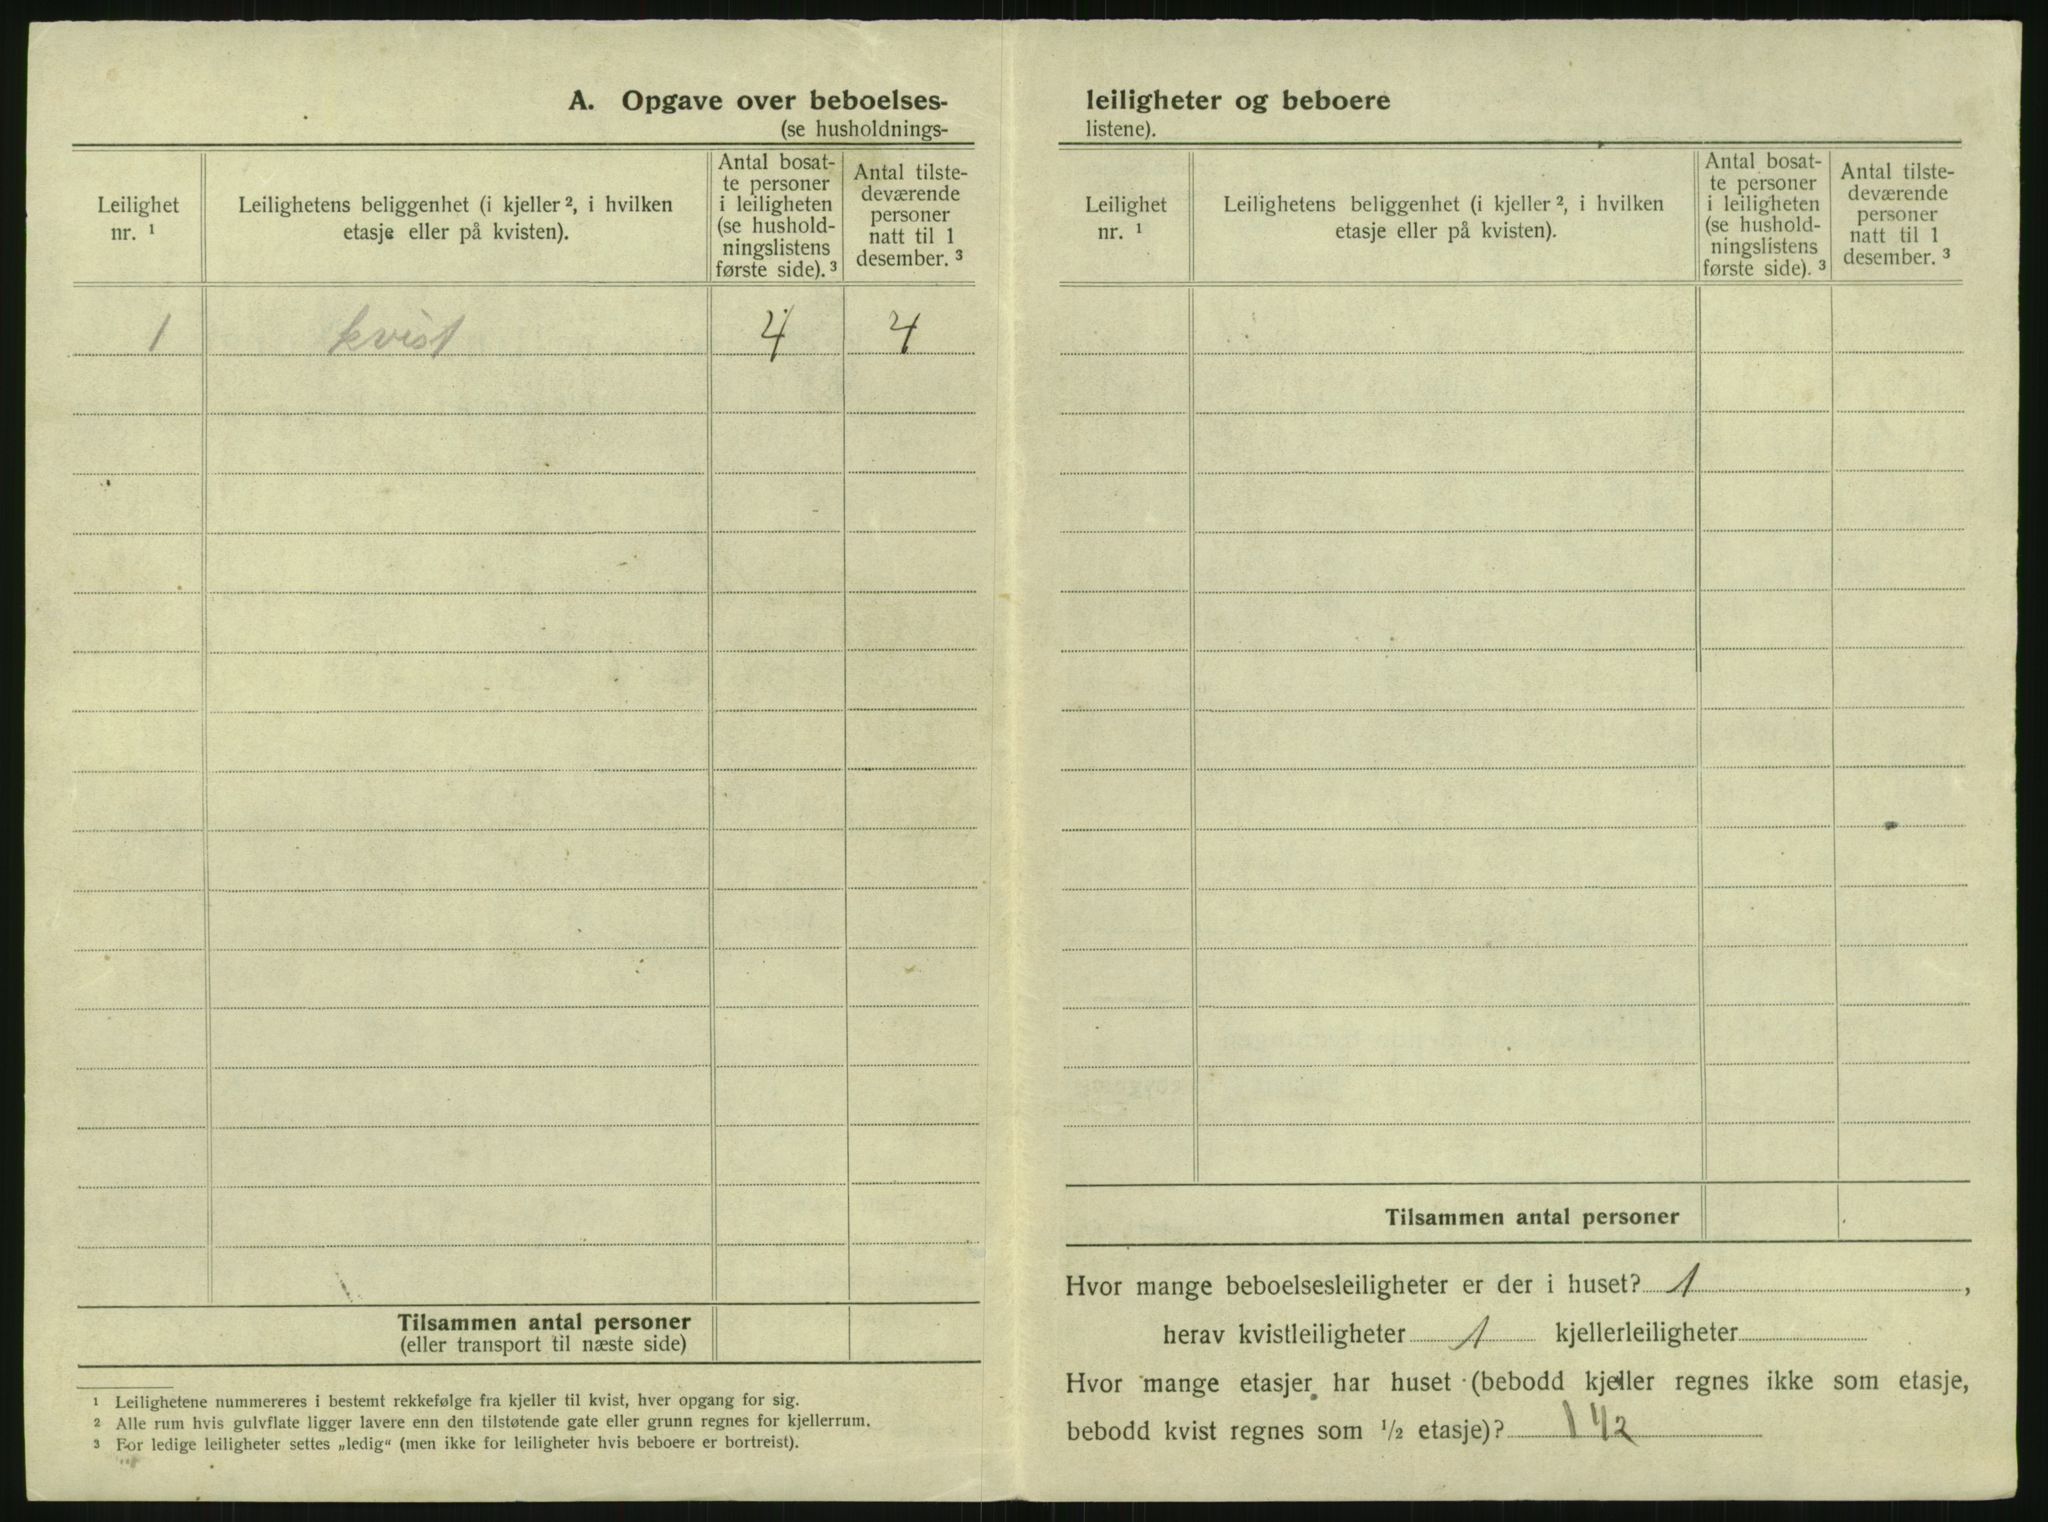 A. Opgave over beboelses-
(se husholdnings-
Leilighet
nr. ¹
Leilighetens beliggenhet (i kjeller ², i hvilken
etasje eller på kvisten).
Antal bosat-
te personer
i leiligheten
(se hushold-
ningslistens
første side). ³
Antal tilste-
deværende
personer
natt til 1
desember. ³
1 kvist 4 4
Tilsammen antal personer
(eller transport til næste side)
¹ Leilighetene nummereres i bestemt rekkefølge fra kjeller til kvist, hver opgang for sig.
² Alle rum hvis gulvflate ligger lavere enn den tilstøtende gate eller grunn regnes for kjellerrum.
³ For ledige leiligheter settes „ledig“ (men ikke for leiligheter hvis beboere er bortreist).
leiligheter og beboere
listene).
Leilighet
nr. ¹
Leilighetens beliggenhet (i kjeller ², i hvilken
etasje eller på kvisten).
Antal bosat-
te personer
i leiligheten
(se hushold-
ningslistens
første side). ³
Antal tilste-
deværende
personer
natt til 1
desember. ³
Tilsammen antal personer
Hvor mange beboelsesleiligheter er der i huset? 1 ,
herav kvistleiligheter 1 kjellerleiligheter
Hvor mange etasjer har huset (bebodd kjeller regnes ikke som etasje,
bebodd kvist regnes som ½ etasje)? 1 ½